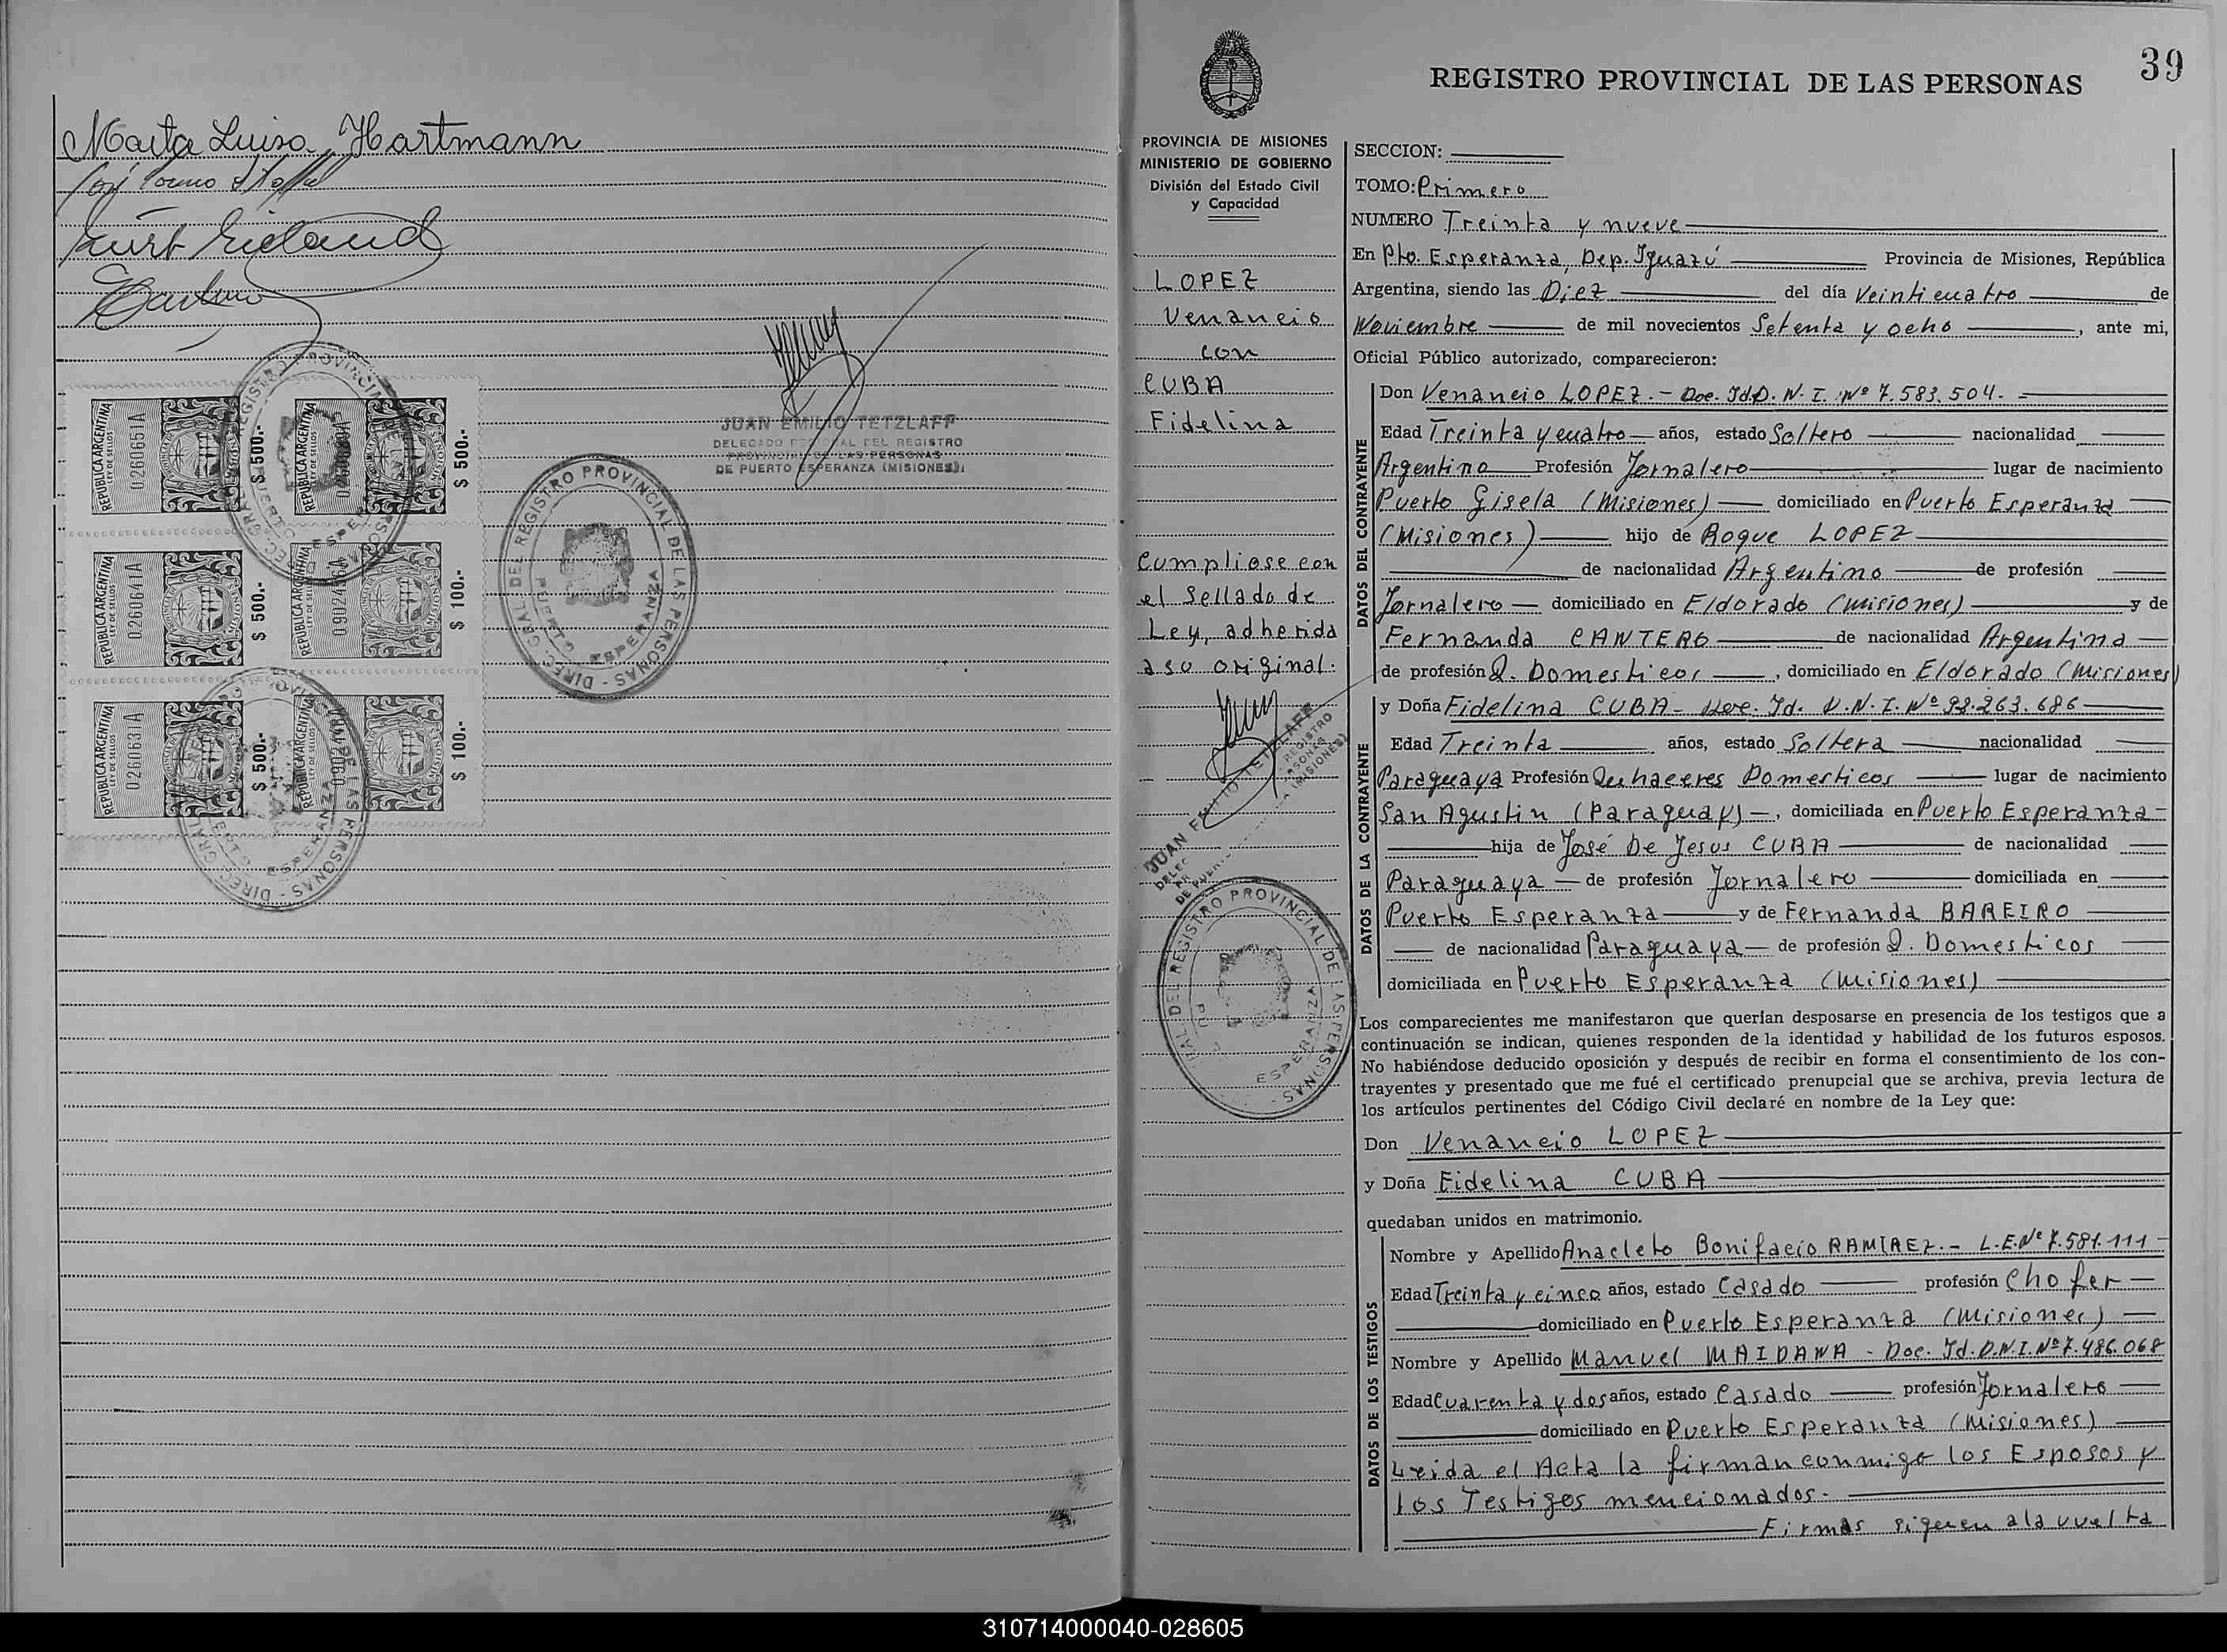 Marta Luisa Hartmann
Kurt
REPUBLICA ARGENTINA
LEY DE SELLOS
0260651A
$ 500.-
REPUBLICA ARGENTINA
LEY DE SELLOS
$ 500.-
REPUBLICA ARGENTINA
LEY DE SELLOS
0260641A
$ 500.-
REPUBLICA ARGENTINA
$ 100.-
REPUBLICA ARGENTINA
LEY DE SELLOS
0260631A
$ 500.-
REPUBLICA ARGENTINA
$ 100.-
JUAN EMILIO TETZLAFF
DELEGADO REGIONAL DEL REGISTRO
PROVINCIAL DE LAS PERSONAS
DE PUERTO ESPERANZA (MISIONES)
DIREC. GRAL. DEL REGISTRO PROVINCIAL DE LAS PERSONAS -
PUERTO ESPERANZA
39
REGISTRO PROVINCIAL DE LAS PERSONAS
PROVINCIA DE MISIONES
MINISTERIO DE GOBIERNO
División del Estado Civil
y Capacidad
LOPEZ
Venancio
con
CUBA
Fidelina
Cumpliose con
el Sellado de
Ley, adherida
a su original.
SECCION:
TOMO: Primero
NUMERO Treinta y nueve
En Pto. Esperanza, Dep. Iguazú Provincia de Misiones, República
Argentina, siendo las Diez del día Veinticuatro de
Noviembre de mil novecientos Setenta y ocho, ante mi,
Oficial Público autorizado, comparecieron:
DATOS DEL CONTRAYENTE
Don Venancio LOPEZ.- Doc. Id. D.N.I. Nº 7.583.504.-
Edad Treinta y cuatro años, estado Soltero nacionalidad
Argentino Profesión Jornalero lugar de nacimiento
Puerto Gisela (Misiones) domiciliado en Puerto Esperanza
(Misiones) hijo de Roque LOPEZ
de nacionalidad Argentino de profesión
Jornalero domiciliado en Eldorado (Misiones) y de
Fernanda CANTERO de nacionalidad Argentina
de profesión Q. Domesticos, domiciliado en Eldorado (Misiones)
DATOS DE LA CONTRAYENTE
y Doña Fidelina CUBA - Doc. Id. D.N.I. Nº 92.263.686
Edad Treinta años, estado Soltera nacionalidad
Paraguaya Profesión Quhaceres Domesticos lugar de nacimiento
San Agustin (Paraguay), domiciliada en Puerto Esperanza
hija de José De Jesus CUBA de nacionalidad
Paraguaya de profesión Jornalero domiciliada en
Puerto Esperanza y de Fernanda BAREIRO
de nacionalidad Paraguaya de profesión Q. Domesticos
domiciliada en Puerto Esperanza (Misiones)
Los comparecientes me manifestaron que querían desposarse en presencia de los testigos que a
continuación se indican, quienes responden de la identidad y habilidad de los futuros esposos.
No habiéndose deducido oposición y después de recibir en forma el consentimiento de los con-
trayentes y presentado que me fué el certificado prenupcial que se archiva, previa lectura de
los artículos pertinentes del Código Civil declaré en nombre de la Ley que:
Don Venancio LOPEZ
y Doña Fidelina CUBA
quedaban unidos en matrimonio.
DATOS DE LOS TESTIGOS
Nombre y Apellido Anacleto Bonifacio RAMIREZ.- L.E.Nº 7.581.111
Edad Treinta y cinco años, estado Casado profesión Chofer
domiciliado en Puerto Esperanza (Misiones)
Nombre y Apellido Manuel MAIDANA - Doc. Id. D.N.I. Nº 7.486.068
Edad Cuarenta y dos años, estado Casado profesión Jornalero
domiciliado en Puerto Esperanza (Misiones)
Leida el Acta la firman conmigo los Esposos y
los Testigos mencionados.-
Firmas siguen a la vuelta
310714000040-028605